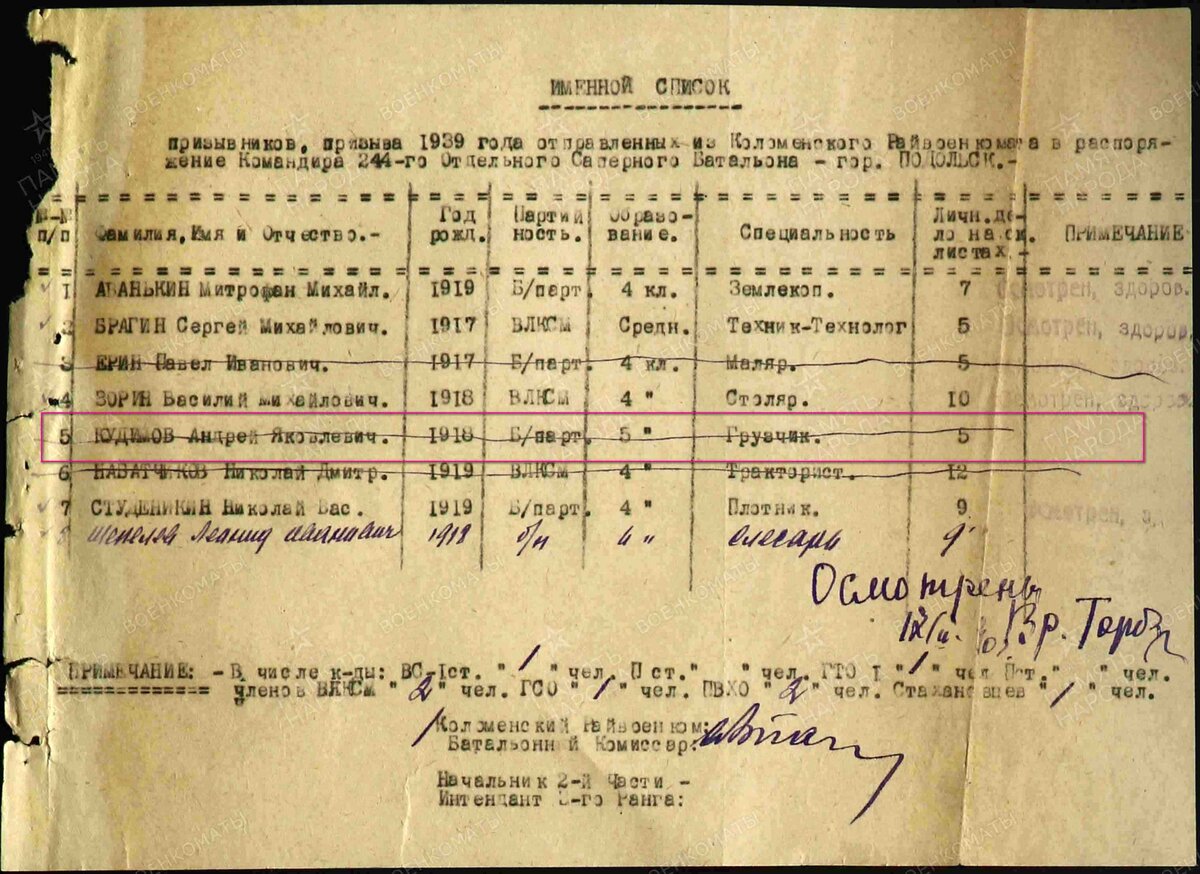 ИМЕННОЙ СПИСОК
призывников, призыва 1939 года отправленных из Коломенского Райвоенкомата в распоря-
жение Командира 244-го Отдельного Саперного Батальона - гор. ПОДОЛЬСК.-
№-№ п/п Фамилия, Имя и Отчество.- Год рожд. Партий ность. Образо- вание. Специальность Личн.де- ло на ск. листах.- ПРИМЕЧАНИЕ
1 АБАНЬКИН Митрофан Михайл. 1919 Б/парт. 4 кл. Землекоп. 7 Осмотрен, здоров.
2 БРАГИН Сергей Михайлович. 1917 ВЛКСМ Средн. Техник-Технолог 5 Осмотрен, здоров.
3 ЕРИН Павел Иванович. 1917 Б/парт. 4 кл. Маляр. 5
4 ЗОРИН Василий Михайлович. 1918 ВЛКСМ 4 " Столяр. 10 Осмотрен, здоров
5 КУДИМОВ Андрей Яковлевич. 1918 Б/парт. 5 " Грузчик. 5
6 НАБАТЧИКОВ Николай Дмитр. 1919 ВЛКСМ 4 " Тракторист. 12
7 СТУДЕНИКИН Николай Вас. 1919 Б/парт. 4 " Плотник. 9 Осмотрен, з
8 Шепелов Леонид 1918 б/п 4 " слесарь 9
Осмотрены
Вр.
ПРИМЕЧАНИЕ: - В числе к-ды: ВС-Iст. " 1 " чел. П ст." " чел. ГТО I " 1 " чел Пст. " " чел.
членов ВЛКСМ " 2 " чел. ГСО " 1 " чел. ПВХО " 2 " чел. Стахановцев " 1 " чел.
Коломенский Райвоенком:
Батальонный Комиссар:
Начальник 2-й Части -
Интендант 3-го Ранга: